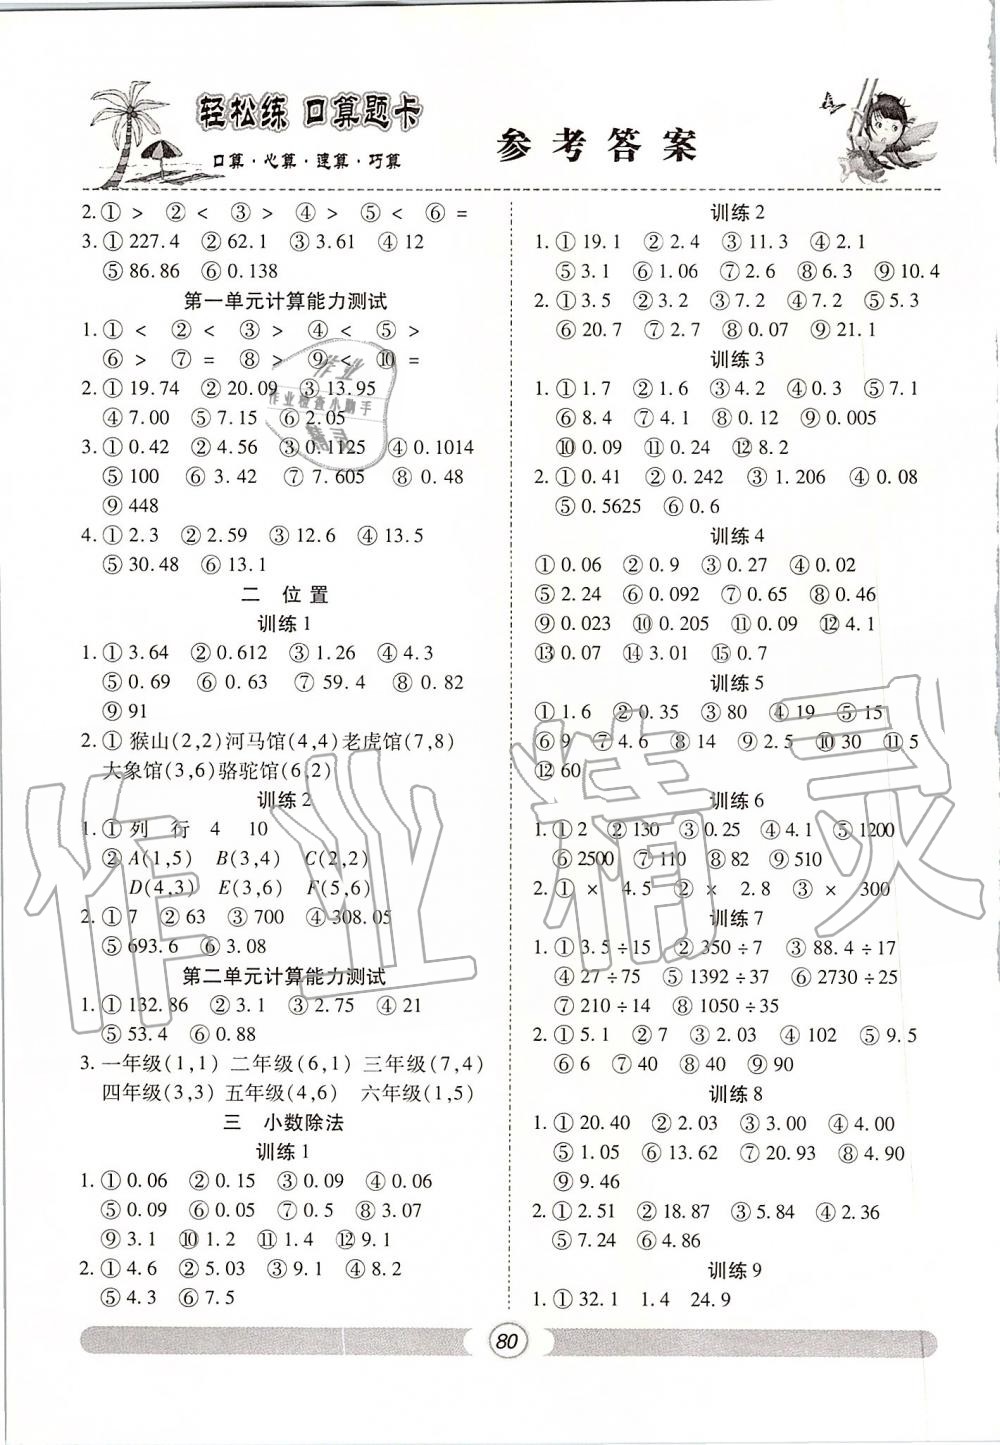 轻松练 口算题卡
口算·心算·速算·巧算
参考答案
2.① > ② < ③ > ④ > ⑤ < ⑥ =
3.① 227.4 ② 62.1 ③ 3.61 ④ 12
⑤ 86.86 ⑥ 0.138
第一单元计算能力测试
1.① < ② < ③ > ④ < ⑤ >
⑥ > ⑦ = ⑧ > ⑨ < ⑩ =
2.① 19.74 ② 20.09 ③ 13.95
④ 7.00 ⑤ 7.15 ⑥ 2.05
3.① 0.42 ② 4.56 ③ 0.1125 ④ 0.1014
⑤ 100 ⑥ 3.42 ⑦ 7.605 ⑧ 0.48
⑨ 448
4.① 2.3 ② 2.59 ③ 12.6 ④ 13.5
⑤ 30.48 ⑥ 13.1
二 位置
训练1
1.① 3.64 ② 0.612 ③ 1.26 ④ 4.3
⑤ 0.69 ⑥ 0.63 ⑦ 59.4 ⑧ 0.82
⑨ 91
2.① 猴山(2,2)河马馆(4,4)老虎馆(7,8)
大象馆(3,6)骆驼馆(6,2)
训练2
1.① 列 行 4 10
② A(1,5) B(3,4) C(2,2)
D(4,3) E(3,6) F(5,6)
2.① 7 ② 63 ③ 700 ④ 308.05
⑤ 693.6 ⑥ 3.08
第二单元计算能力测试
1.① 132.86 ② 3.1 ③ 2.75 ④ 21
⑤ 53.4 ⑥ 0.88
3.一年级(1,1) 二年级(6,1) 三年级(7,4)
四年级(3,3) 五年级(4,6) 六年级(1,5)
三 小数除法
训练1
1.① 0.06 ② 0.15 ③ 0.09 ④ 0.06
⑤ 0.09 ⑥ 0.05 ⑦ 0.5 ⑧ 3.07
⑨ 3.1 ⑩ 1.2 ⑪ 1.4 ⑫ 9.1
2.① 4.6 ② 5.03 ③ 9.1 ④ 8.2
⑤ 4.3 ⑥ 7.5
训练2
1.① 19.1 ② 2.4 ③ 11.3 ④ 2.1
⑤ 3.1 ⑥ 1.06 ⑦ 2.6 ⑧ 6.3 ⑨ 10.4
2.① 3.5 ② 3.2 ③ 7.2 ④ 7.2 ⑤ 5.3
⑥ 20.7 ⑦ 2.7 ⑧ 0.07 ⑨ 21.1
训练3
1.① 1.7 ② 1.6 ③ 4.2 ④ 0.3 ⑤ 7.1
⑥ 8.4 ⑦ 4.1 ⑧ 0.12 ⑨ 0.005
⑩ 0.09 ⑪ 0.24 ⑫ 8.2
2.① 0.41 ② 0.242 ③ 1.206 ④ 0.08
⑤ 0.5625 ⑥ 0.6
训练4
① 0.06 ② 0.9 ③ 0.27 ④ 0.02
⑤ 2.24 ⑥ 0.092 ⑦ 0.65 ⑧ 0.46
⑨ 0.023 ⑩ 0.205 ⑪ 0.09 ⑫ 4.1
⑬ 0.07 ⑭ 3.01 ⑮ 0.7
训练5
① 1.6 ② 0.35 ③ 80 ④ 19 ⑤ 15
⑥ 9 ⑦ 4.6 ⑧ 14 ⑨ 2.5 ⑩ 30 ⑪ 5
⑫ 60
训练6
1.① 2 ② 130 ③ 0.25 ④ 4.1 ⑤ 1200
⑥ 2500 ⑦ 110 ⑧ 82 ⑨ 510
2.① × 4.5 ② × 2.8 ③ × 300
训练7
1.① 3.5÷15 ② 350÷7 ③ 88.4÷17
④ 27÷75 ⑤ 1392÷37 ⑥ 2730÷25
⑦ 210÷14 ⑧ 1050÷35
2.① 5.1 ② 7 ③ 2.03 ④ 102 ⑤ 9.5
⑥ 6 ⑦ 40 ⑧ 40 ⑨ 90
训练8
1.① 20.40 ② 2.03 ③ 3.00 ④ 4.00
⑤ 1.05 ⑥ 13.52 ⑦ 20.93 ⑧ 4.90
⑨ 9.46
2.① 2.51 ② 18.87 ③ 5.84 ④ 2.36
⑤ 7.24 ⑥ 4.86
训练9
1.① 32.1 1.4 24.9
80
作业精灵
作业
作业检查小助手
精灵